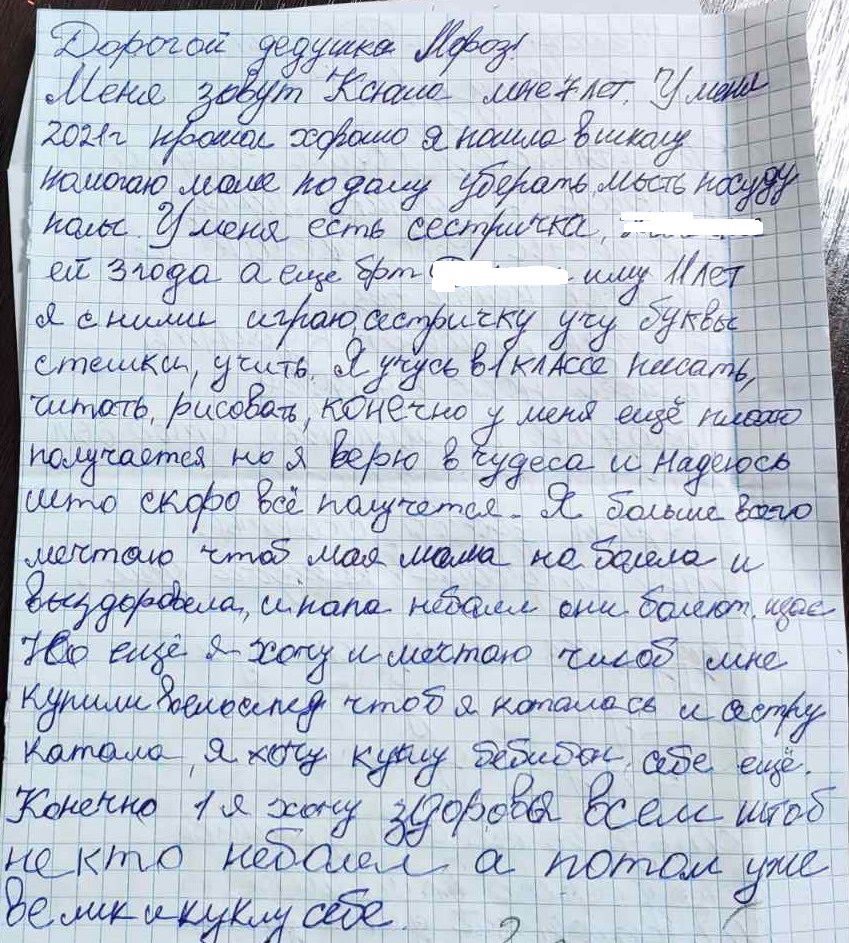 Дорогой дедушка Мороз!
Меня зовут Ксюша мне 7 лет. У меня
2021г прошол хорошо я пошла вшколу
помогаю маме подаму уберать, мыть посуду
полы. У меня есть сестричка,
ей 3 года а еще брт иму 11 лет
я с ними играю, сестричку учу буквы
стешки, учить. Я учусь в 1 КЛАССЕ писать,
читать, рисовать, конечно у меня ещё плохо
получается но я верю в чудеса и надеюсь
што скоро всё получется. Я больше всего
мечтаю чтоб мая мама не болела и
выздоровела, и папа неболел они болеют щас
Но ещё я хочу и мечтаю чтоб мне
купили велоспед чтоб я каталась и сестру
катала, я хочу куклу бебибон себе ещё.
Конечно 1 я хочу здоровья всем штоб
не кто неболел а потом уже
велик и куклу себе.